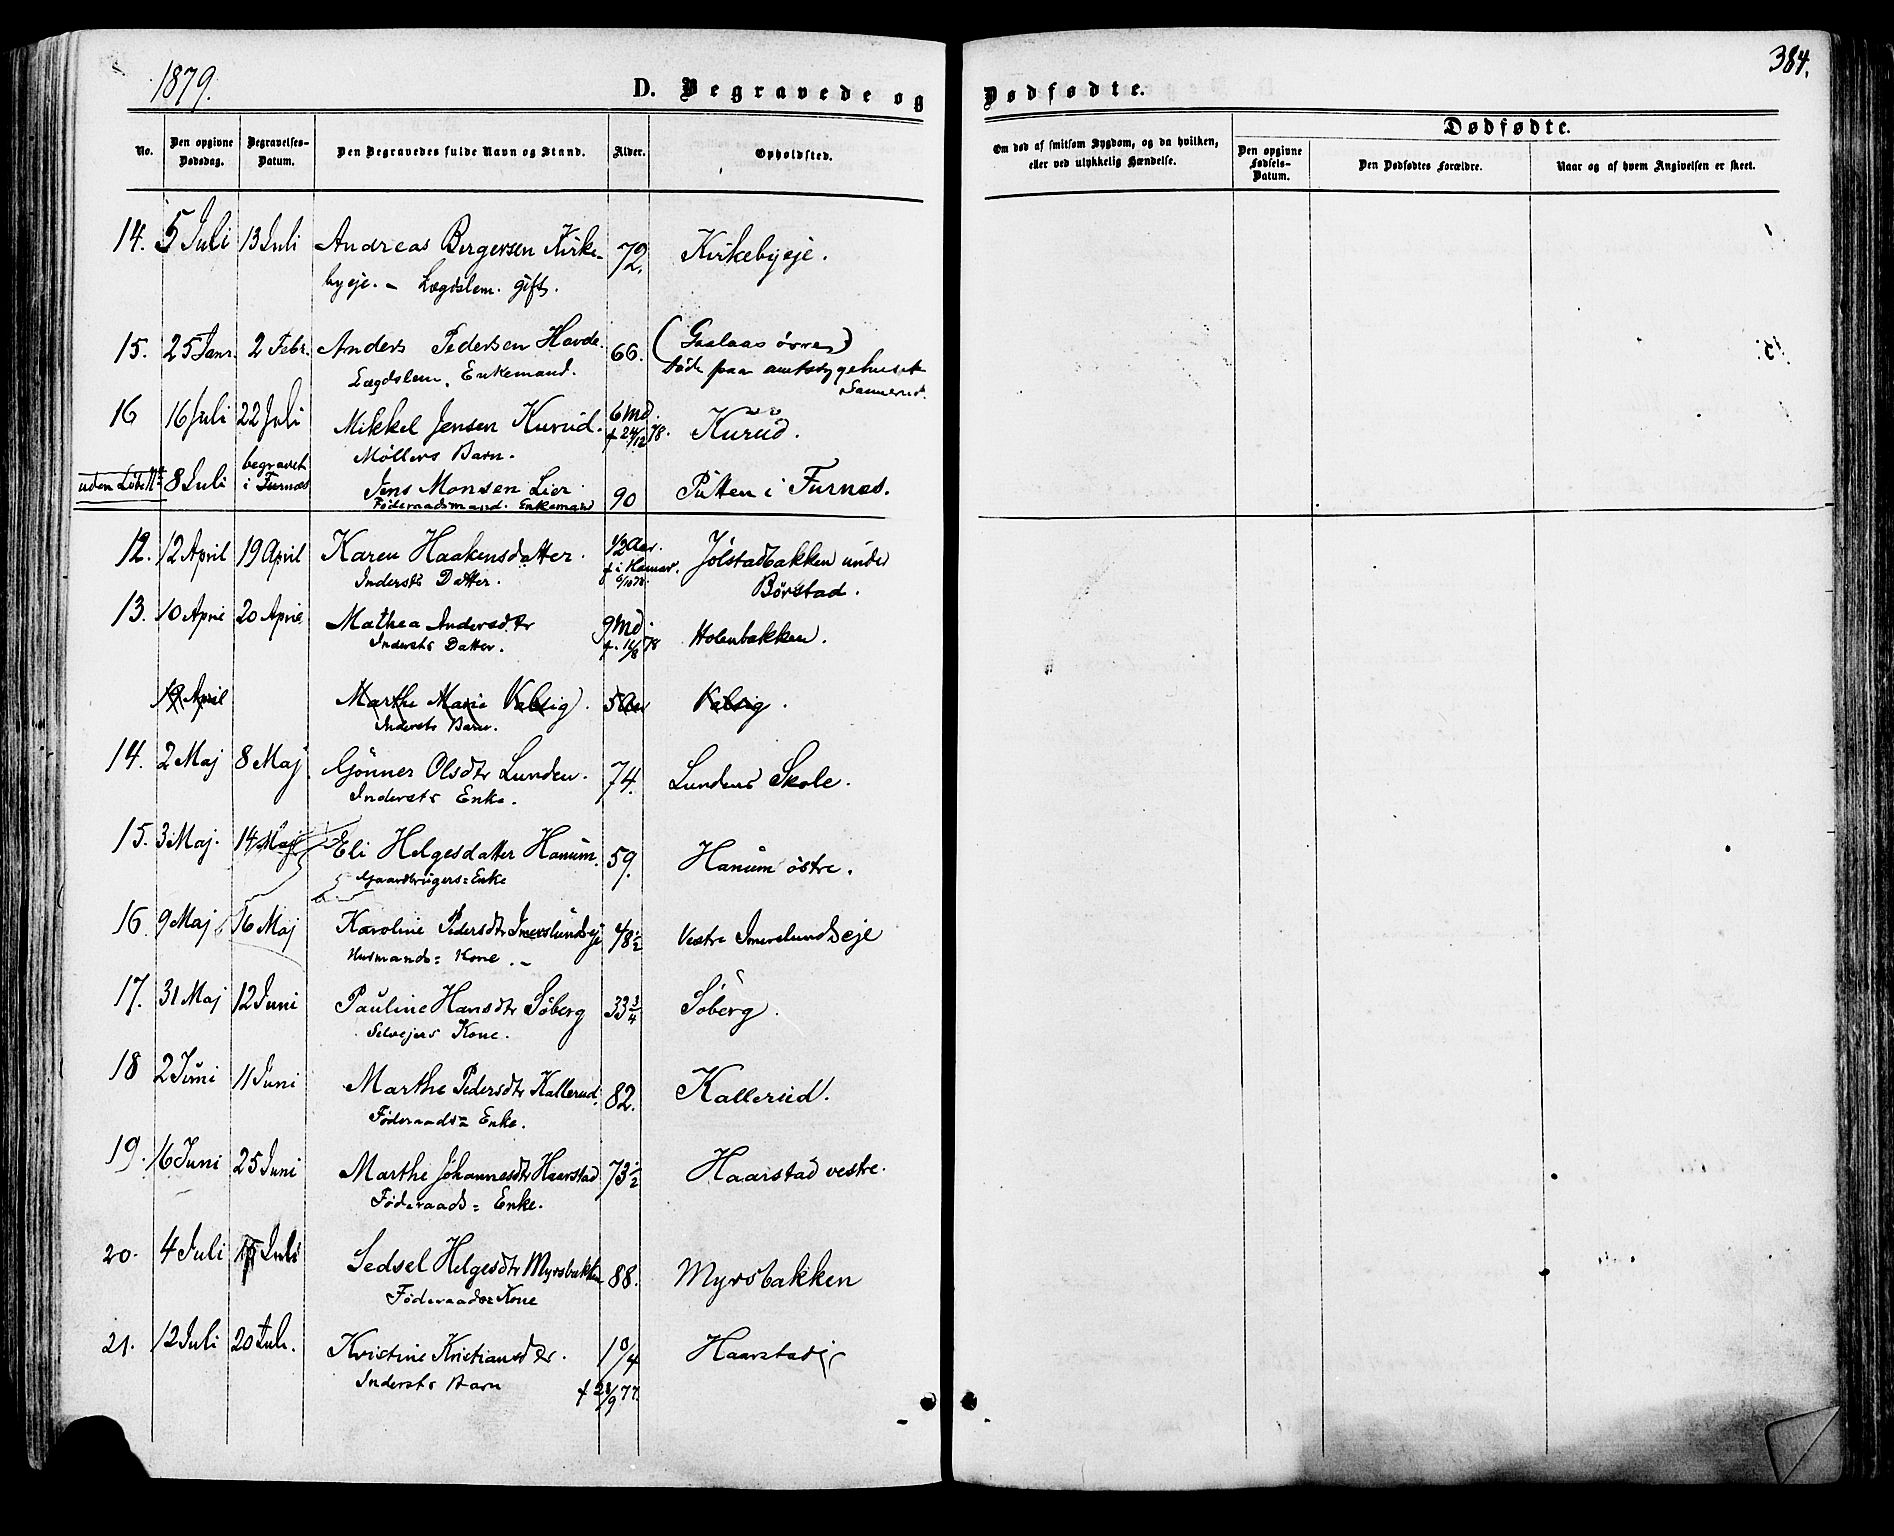 1879.
384.
D. Begravede og Dødfødte.
No.
Den opgivne Dødsdag.
Begravelses-Datum.
Den Begravedes fulde Navn og Stand.
Alder.
Opholdsted.
Om død af smitsom Sygdom, og da hvilken, eller ved ulykkelig Hændelse.
Dødfødte.
Den opgivne Fødsels-Datum.
Den Dødfødtes Forældre.
Naar og af hvem Angivelsen er skeet.
14. 5 Juli 13 Juli Andreas Bergersen Kirke- 72. Kirkebyeje.
byeje. - Lægdslem. gift.
15. 25 Janr. 2 Febr. Anders Pedersen Hovde. 66. (Gaalaas övre)
Lægdslem. Enkemand. död paa amtssygehuset
Sannerud.
16 16 Juli 22 Juli Mikkel Jensen Kurud. 6 Md. Kurud.
Møllers Barn. f 24/12 78.
uden Løbe No 8 Juli begravet i Furnæs Jens Monsen Lier 90 Putten i Furnæs.
Føderaadsmand. Enkemand
12. 12 April 19 April Karen Haakensdatter. 1/2 Aar. Jølstadbakken under
Inderste Datter. f i Hamar. 6/10 78. Børstad.
13. 10 April 20 April Mathea Andersdtr 9 Md. Holenbakken.
Inderste Datter. f. 11/8 78
12 April Marthe Marie Valsig. 5 Aar Valsig.
Inderste Barn.
14. 2 Maj 8 Maj Gönner Olsdtr Lunden. 74. Lundens Skole.
Inderste Enke.
15. 3 Maj. 14 Maj Eli Helgesdatter Hanum. 59. Hanum östre.
Gaardbrugers= Enke
16. 9 Maj 16 Maj Karoline Pedersdtr Imerslundseje 48 1/2 Vestre Imerslundseje
Husmands= Kone. -
17. 31 Maj 12 Juni Pauline Hansdtr Søberg 33 3/4 Søberg.
Selvejers Kone.
18 2 Juni 11 Juni Marthe Pedersdtr Kallerud. 82. Kallerud.
Føderaads= Enke.
19. 16 Juni 25 Juni Marthe Johannesdtr Haarstad 73 1/2 Haarstad vestre.
Føderaads= Enke.
20. 4 Juli Juli Sedsel Helgesdtr Myrsbakken 88. Myrsbakken
Føderaads= Kone
21. 12 Juli 20 Juli. Kristine Kristiansdtr. Haarstadeje
Inderste Barn f 28/9 77.